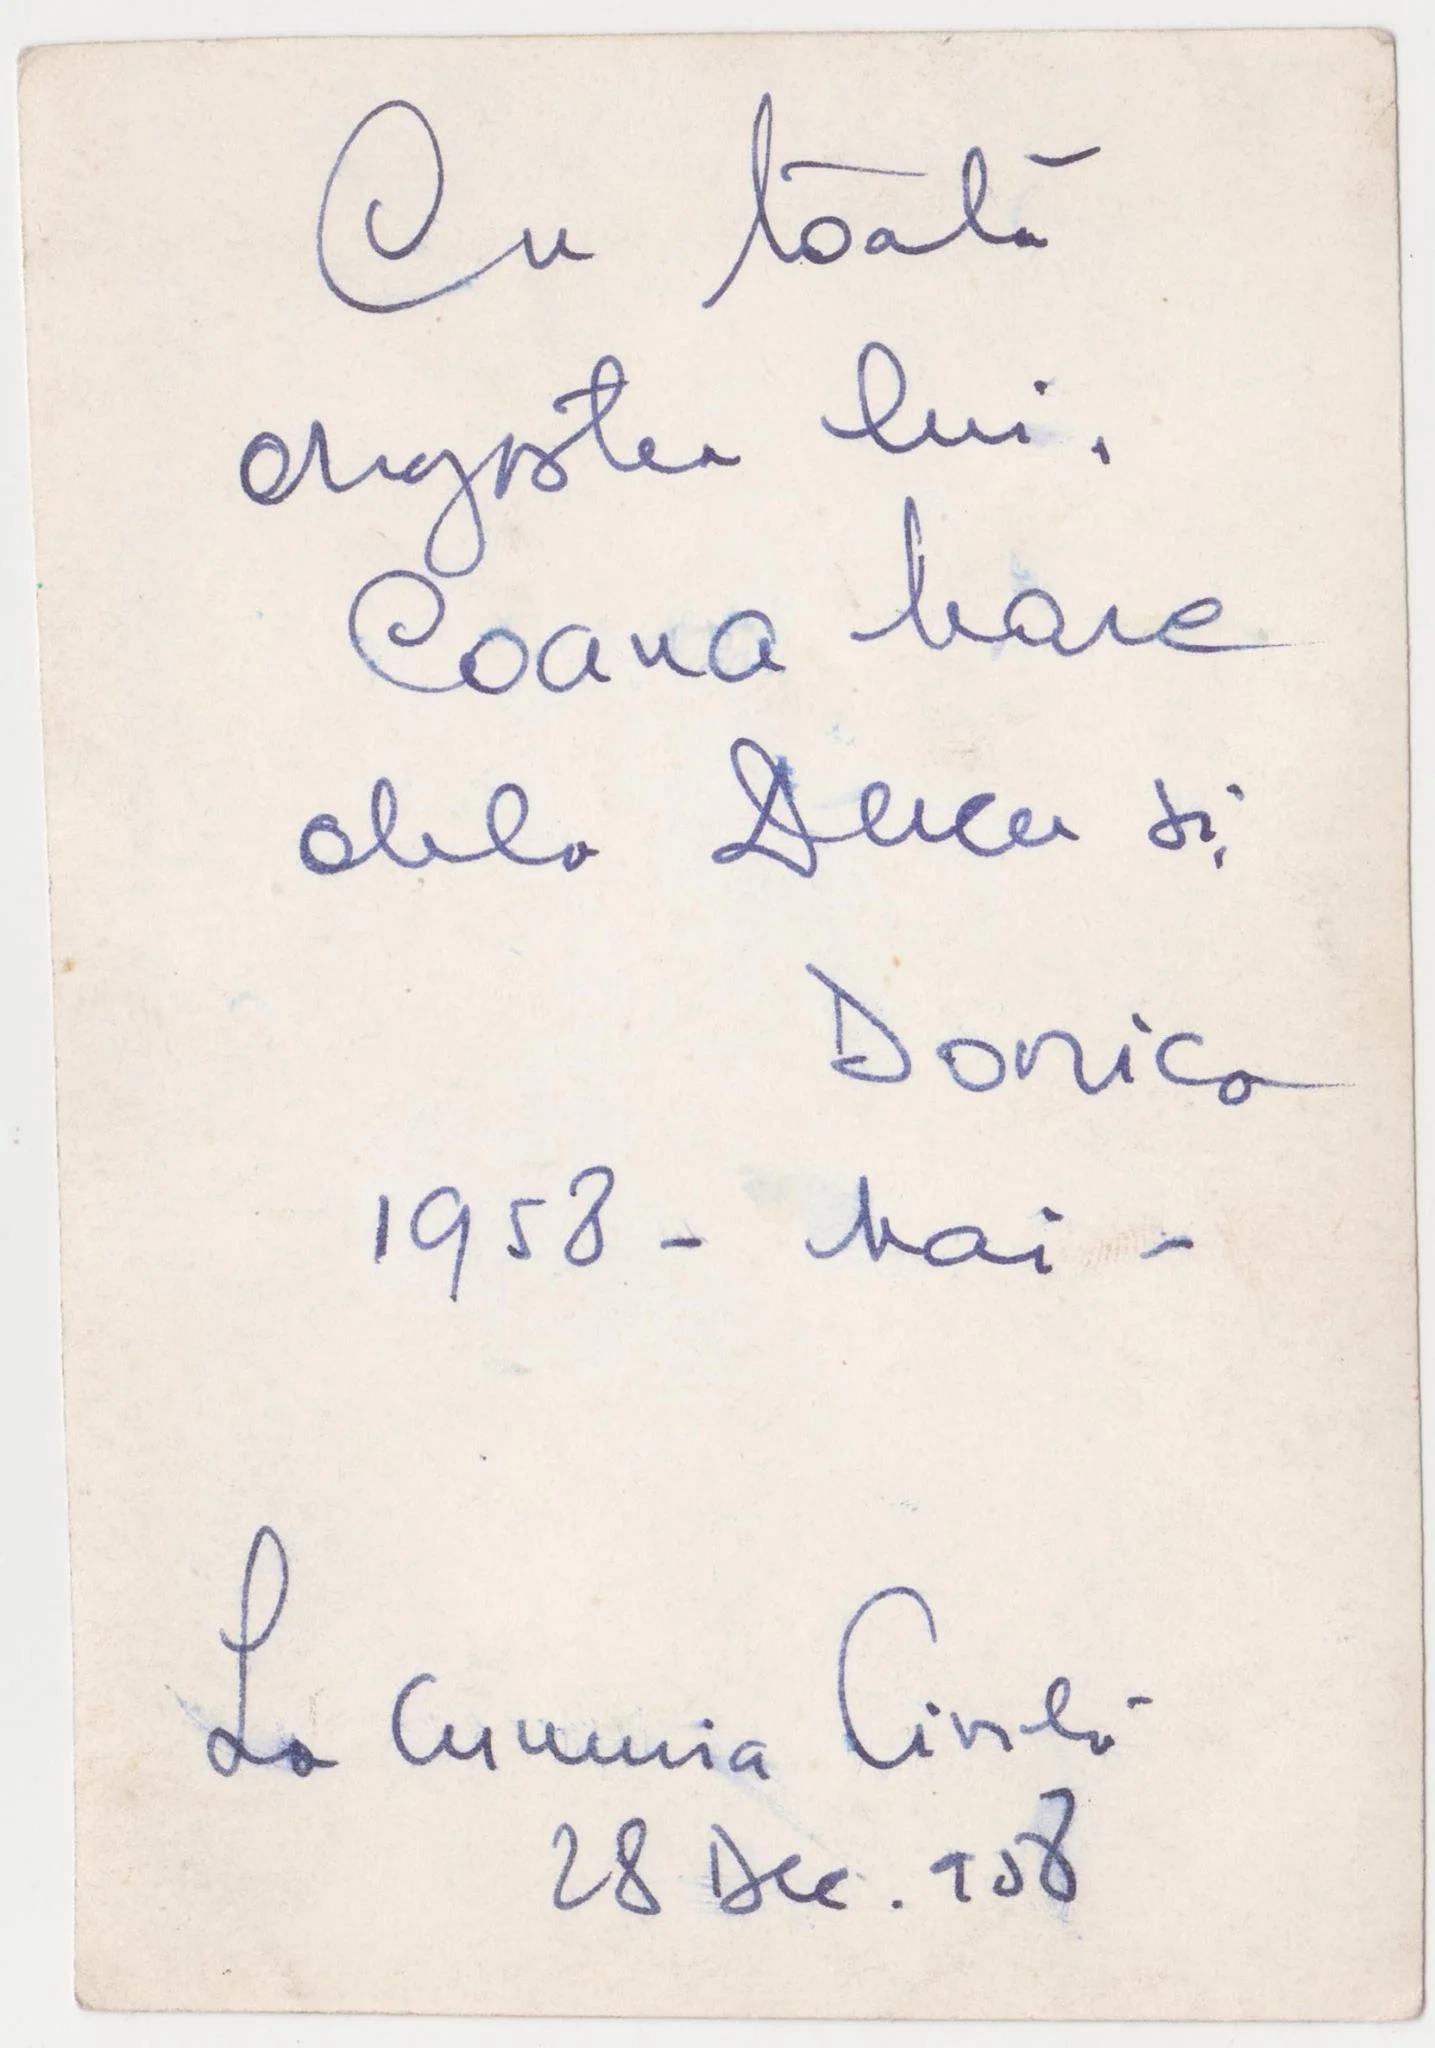 Cu toată
dragostea lui,
Coana Mare
dela Ducu și
Dorica
1958 - Mai -
La Cununia Civilă
28 Dec. 958